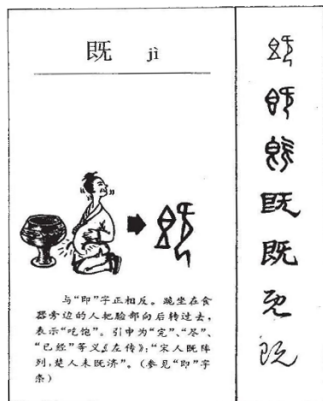 既 jì
与“即”字正相反。跪坐在食
器旁边的人把脸部向后转过去,
表示“吃饱”。引申为“完”、“尽”、
“已经”等义《左传》:“宋人既阵
列,楚人未既济”。(参见“即”字
条)
既
既